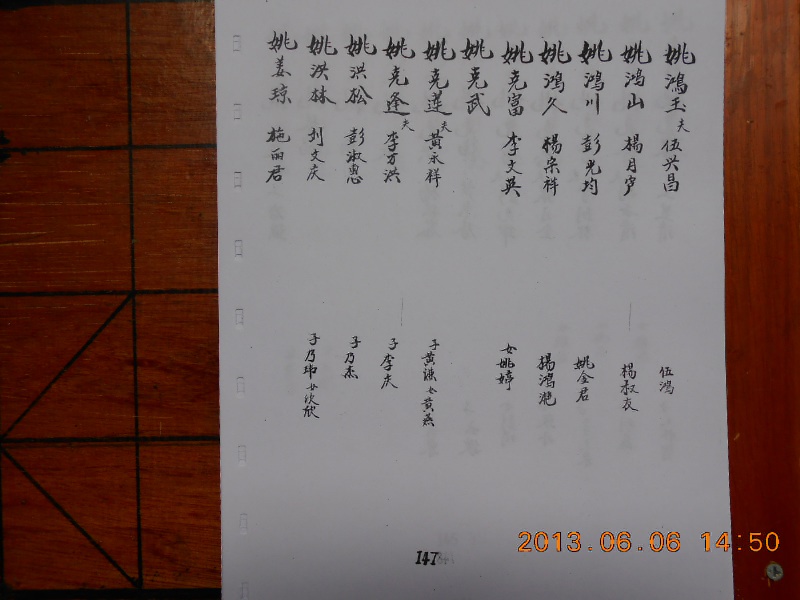 姚鴻玉 夫 伍兴昌 伍鴻
姚鴻山 楊月 楊叔友
姚鴻川 彭光均 姚金君
姚鴻久 楊宗祥 楊鴻艳
姚克富 李文英 女姚婷
姚克武
姚克莲 夫 黄永祥 子黄 女黄燕
姚克逢 夫 李方洪 子李庆
姚洪松 彭淑惠 子乃杰
姚洪林 刘文庆 子乃玮 女欣欣
姚姜琼 施丽君
147
2013.06.06 14:50